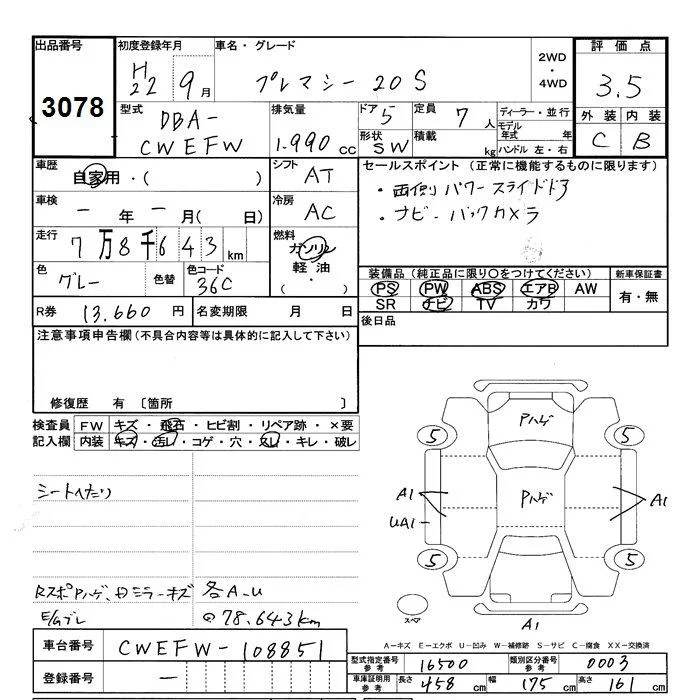 出品番号 初度登録年月 車名・グレード 評価点
3078 H22 9月 プレマシー 20S 2WD・4WD 3.5
型式 排気量 ドア 5 定員 7人 ディーラー・並行 外装 内装
DBA- モデル年式 年 C B
CWEFW 1.990cc 形状 SW 積載 kg ハンドル 左・右
車歴 シフト セールスポイント (正常に機能するものに限ります)
自家用・( ) AT ・両側パワースライドドア
車検 冷房 ・ナビ・バックカメラ
ー年ー月( 日) AC
走行 燃料
7万8千643km ガソリン・軽油・
色 色替 色コード 装備品(純正品に限り○をつけてください) 新車保証書
グレー 36C PS PW ABS エアB AW 有・無
SR ナビ TV カワ
R券 13.660円 名変期限 月 日 後日品
注意事項申告欄(不具合内容等は具体的に記入して下さい)
修復歴 有 〔箇所 〕
検査員 FW キズ・飛石・ヒビ割・リペア跡・×要
記入欄 内装 キズ・汚レ・コゲ・穴・スレ・キレ・破レ
Pハゲ
5 5
シートへたり
A1 Pハゲ A1
UA1
5 5
RスポPハゲ、 ミラーキズ 各A-U
E/Gブレ @78.643km スペア A1
A-キズ E-エクボ U-凹み W-補修跡 S-サビ C-腐食 XX-交換済
車台番号 CWEFW-108851
型式指定番号 参考 16500 類別区分番号 参考 0003
登録番号 ー
車庫証明用 参考 長さ 458cm 幅 175cm 高さ 161cm